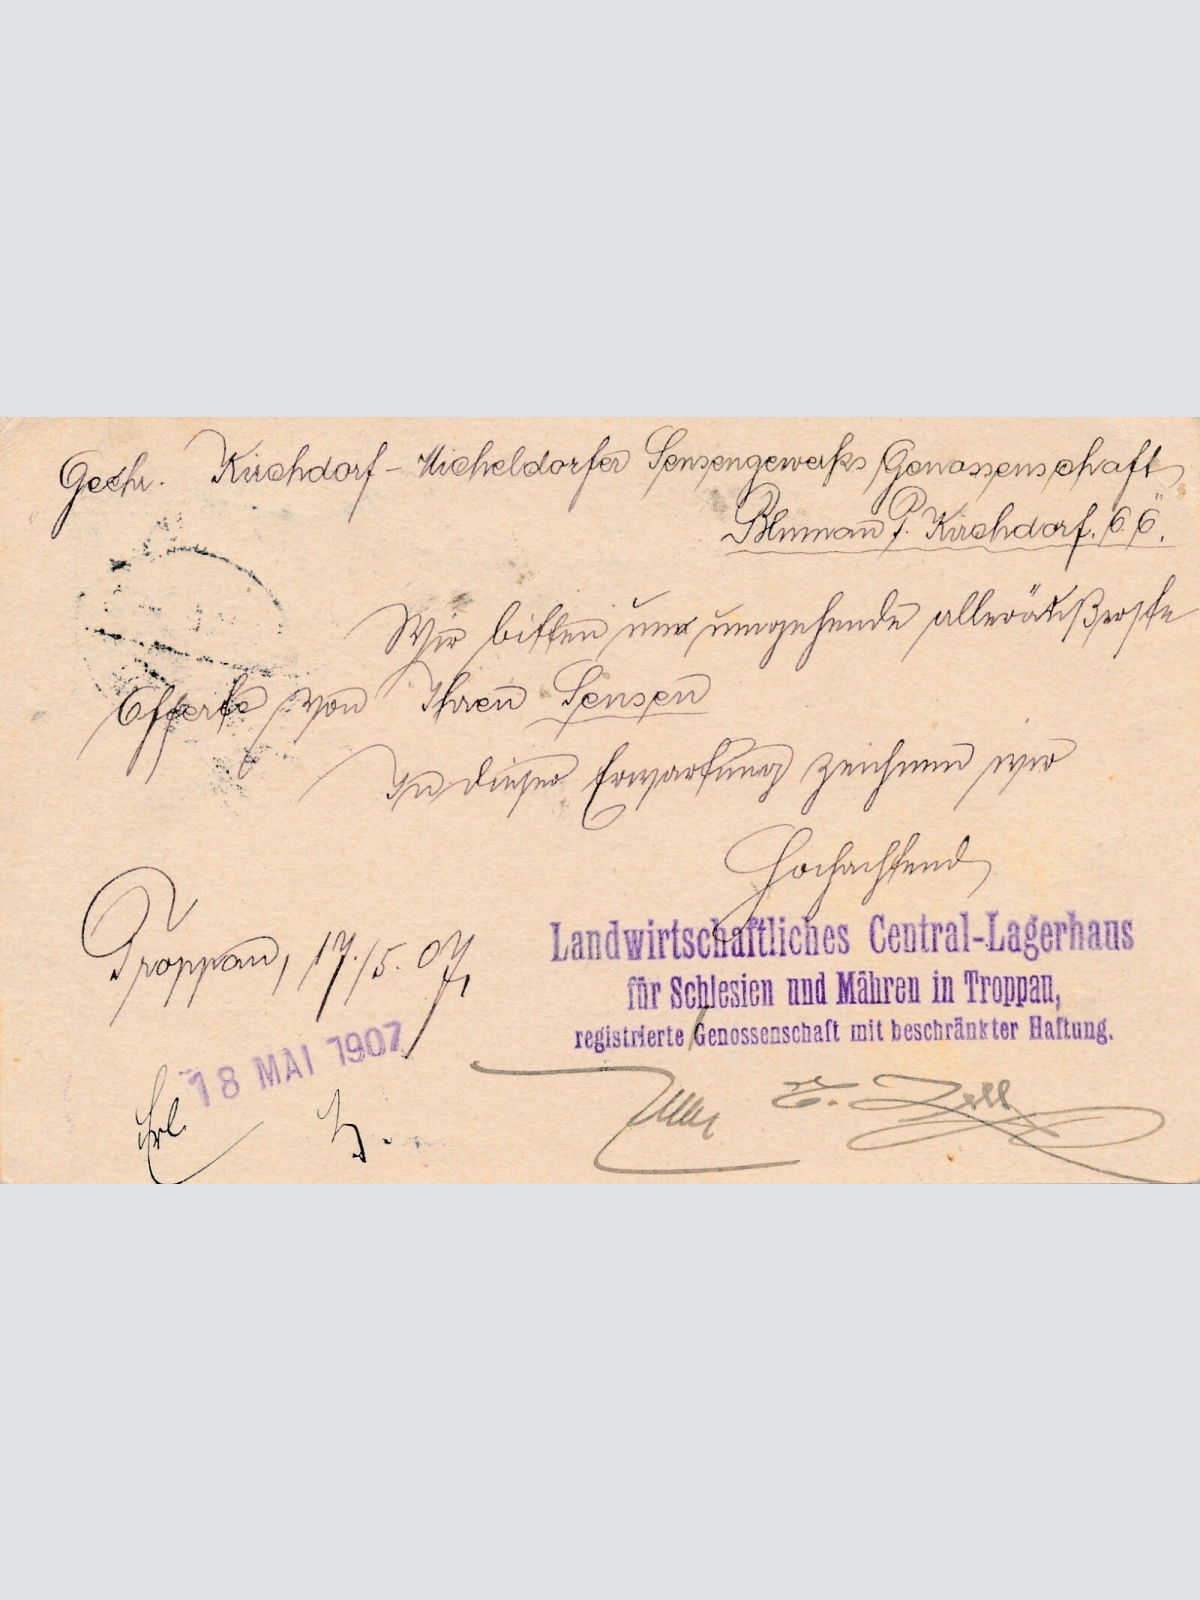 Geehr. Kirchdorf-Micheldorfer Sensengewerks Genossenschaft
Blumau P. Kirchdorf. O.Ö.
Wir bitten um umgehende alleräußerste
Offerte von Ihren Sensen
In dieser Erwartung zeichnen wir
Hochachtend
Landwirtschaftliches Central-Lagerhaus
für Schlesien und Mähren in Troppau,
registrierte Genossenschaft mit beschränkter Haftung.
Troppau, 17./5. 07,
18 MAI 1907
Erl